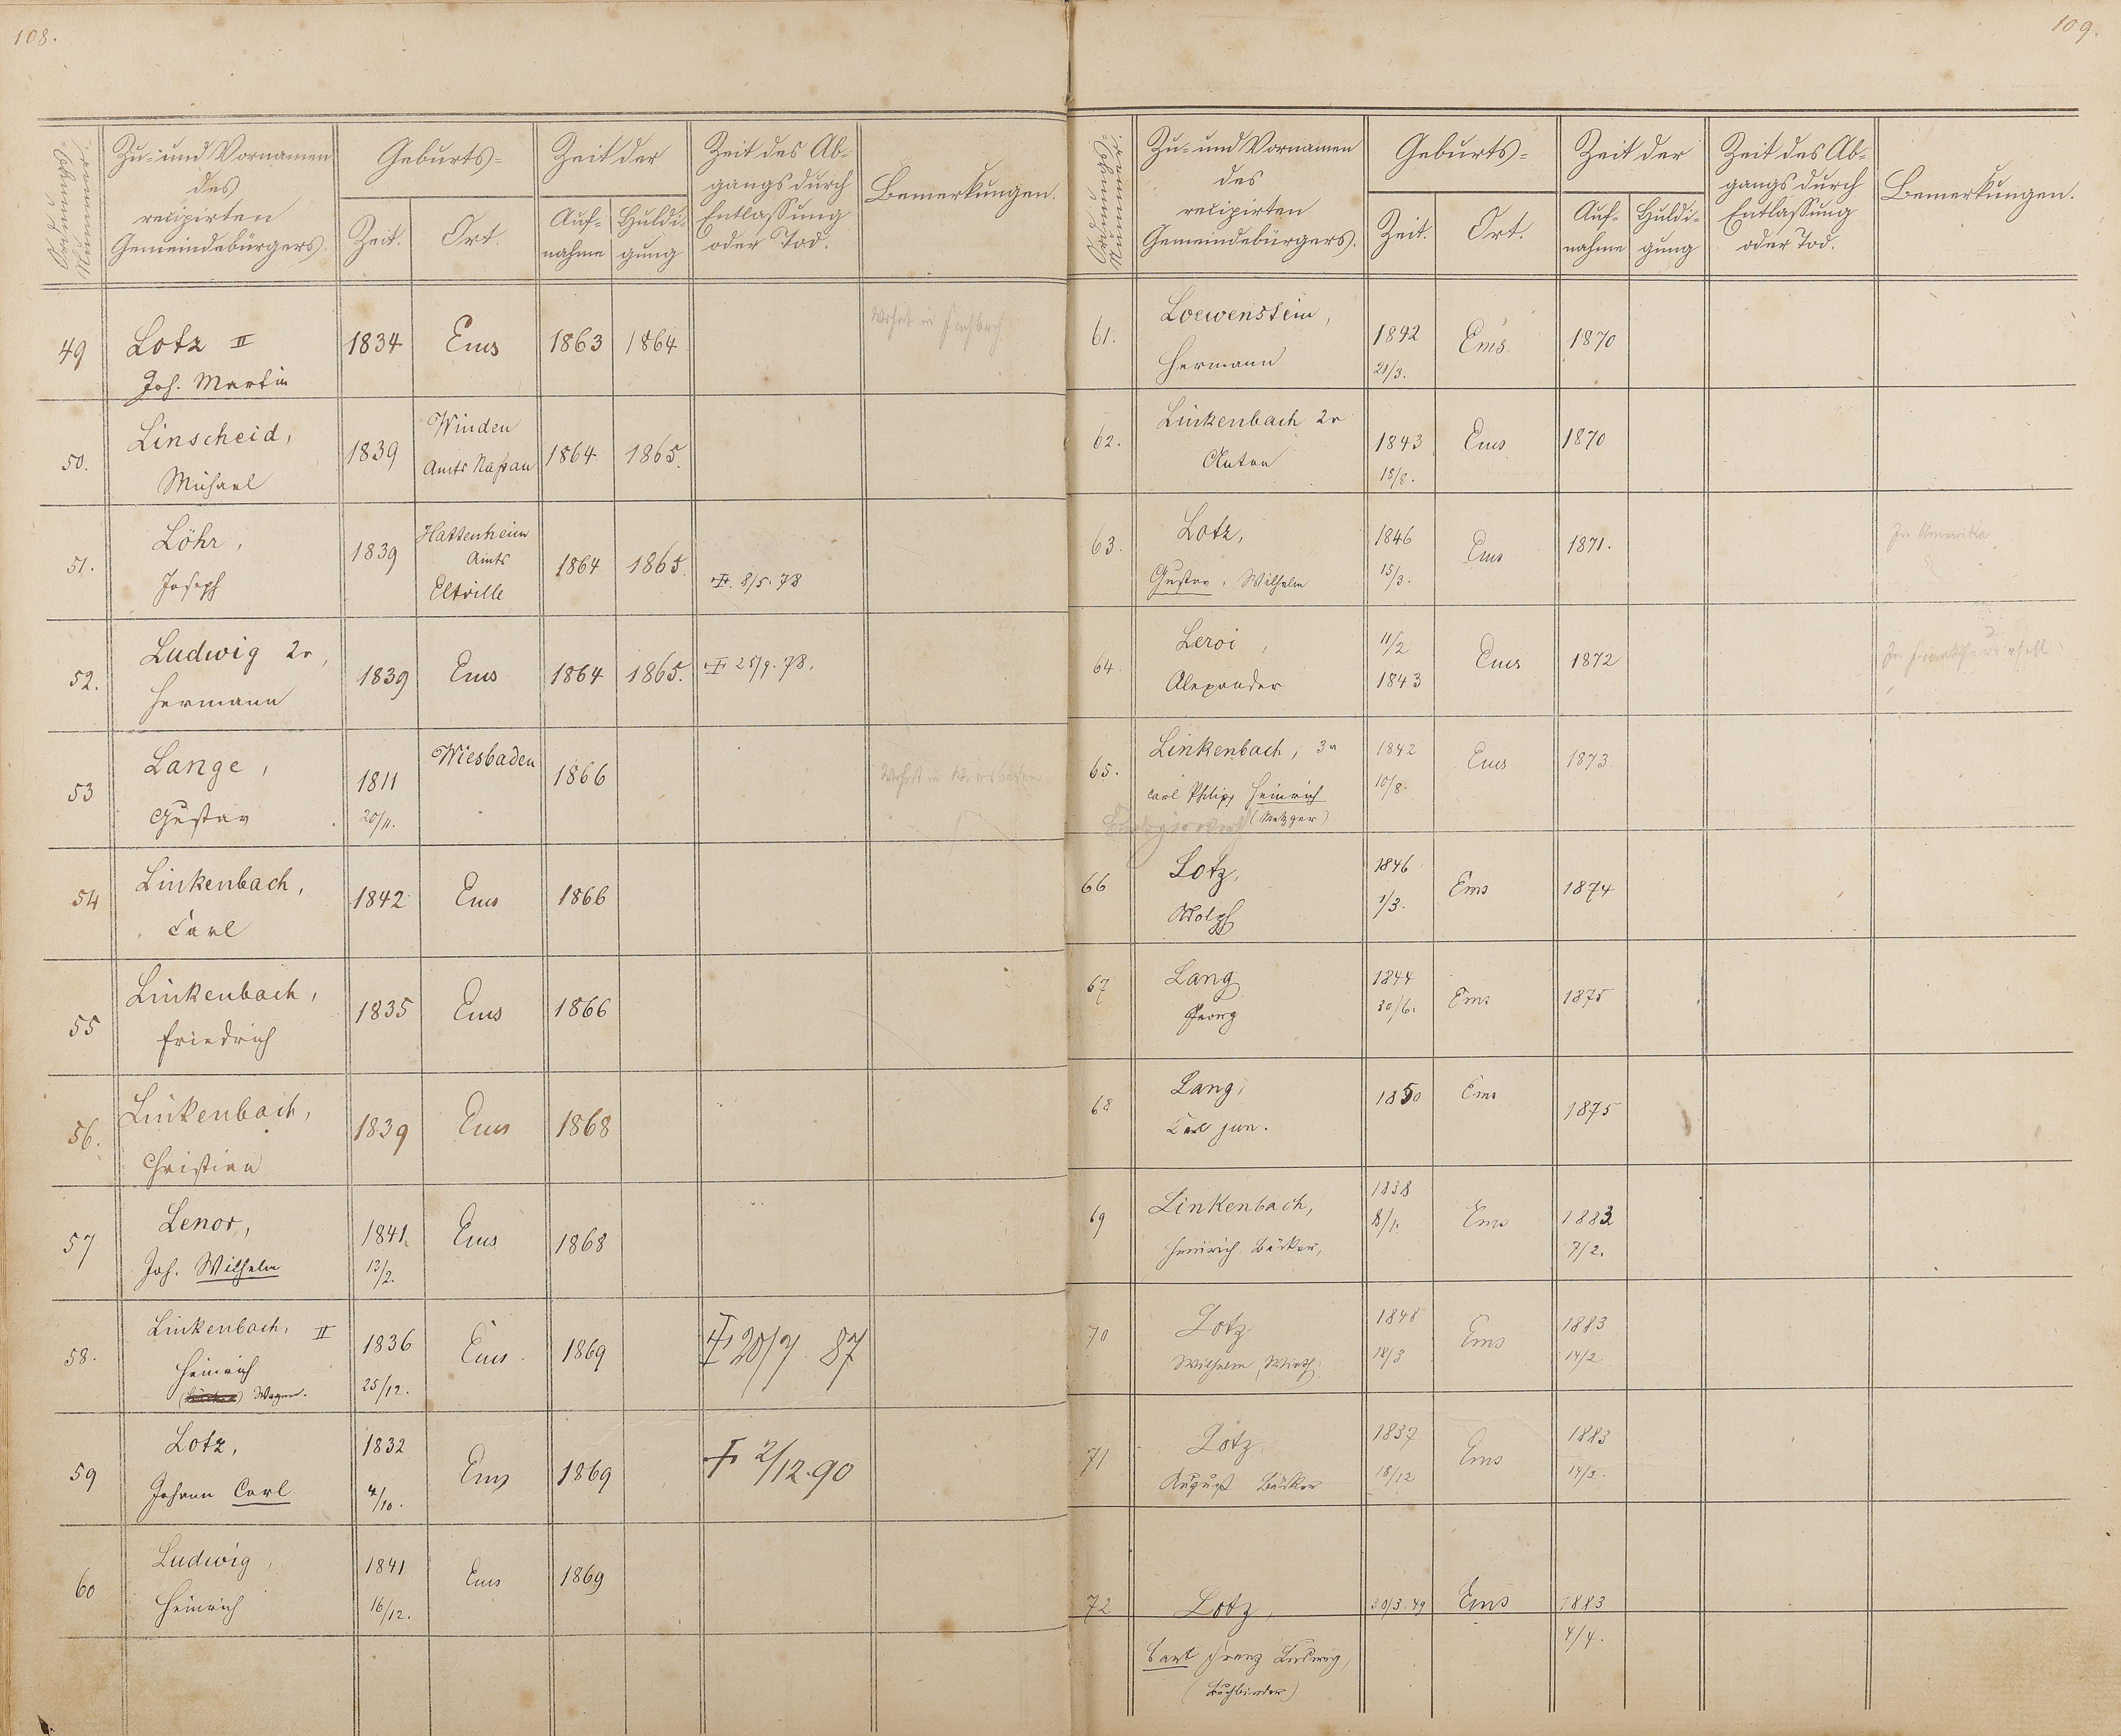 108.
Ordnungs-
Nummer.
Zu- und Vornamen
des
recipirten
Gemeindebürgers.
Geburts-
Zeit.
Ort.
Zeit der
Auf-
nahme
Huldi-
gung
Zeit des Ab-
gangs durch
Entlassung
oder Tod.
Bemerkungen.
49
Lotz II
Joh. Martin
1834
Ems
1863
1864
Wohnt in
50.
Linscheid,
Michael
1839
Winden
Amts Nassau
1864
1865.
51.
Löhr,
Joseph
1839
Hattenheim
Amts
Eltville
1864
1865.
✝. 8/5. 78
52.
Ludwig 2r,
Hermann
1839
Ems
1864
1865.
✝ 25/9. 78.
53
Lange,
Gustav
1811
20/11.
Wiesbaden
1866
Wohnt in Wiesbaden
54
Linkenbach,
Carl
1842
Ems
1866
55
Linkenbach,
Friedrich
1835
Ems
1866
56.
Linkenbach,
Christian
1839
Ems
1868
57
Lenor,
Joh. Wilhelm
1841.
13/2.
Ems
1868
58.
Linkenbach, II
Heinrich
Wagner.
1836
25/12.
Ems.
1869
✝ 20/7 87
59
Lotz,
Johann Carl
1832
4/10.
Ems
1869
✝ 2/12.90
60
Ludwig,
Heinrich
1841
16/12.
Ems
1869
109.
Ordnungs-
Nummer.
Zu- und Vornamen
des
recipirten
Gemeindebürgers.
Geburts-
Zeit.
Ort.
Zeit der
Auf-
nahme
Huldi-
gung
Zeit des Ab-
gangs durch
Entlassung
oder Tod.
Bemerkungen.
61.
Loewenstein,
Hermann
1842
21/3.
Ems.
1870
62.
Linkenbach 2r
Anton
1843
15/8.
Ems
1870
63.
Lotz,
Gustav, Wilhelm
1846
15/3.
Ems
1871.
In Amerika
64.
Leroi,
Alexander
11/2
1843
Ems
1872
In
65.
Linkenbach, 3r
Carl Philipp Heinrich
(Metzger)
1842
10/8.
Ems
1873.
66
Lotz,
Adolph
1846
1/3.
Ems
1874
67
Lang
Georg
1844
30/6.
Ems
1875
68
Lang,
Carl jun.
1850
Ems
1875
69
Linkenbach,
Heinrich Bäcker,
1838
8/1.
Ems
1883
7/2.
70
Lotz
Wilhelm, Wirth.
1848
18/3
Ems
1883
14/2
71
Lotz,
August Bäcker
1837
18/12
Ems
1883
14/2.
72
Lotz,
Carl Franz Ludwig,
(Buchbinder)
30/3.49
Ems
1883
4/4.